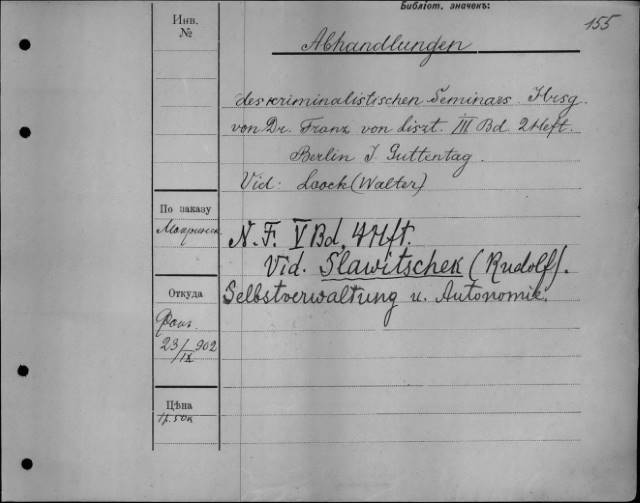 Библіот. значекъ:
155
Инв.
№
Abhandlungen
des kriminalistischen Seminars. Hrsg.
von Dr. Franz von Liszt. III Bd. 2 Heft.
Berlin J. Guttentag.
Vid: Loock (Walter)
По заказу
N. F. V Bd. 4 Hft.
Vid. Slawitschek (Rudolf).
Откуда
Selbstverwaltung u. Autonomie.
23/IX 902
Цѣна
1р. 50к